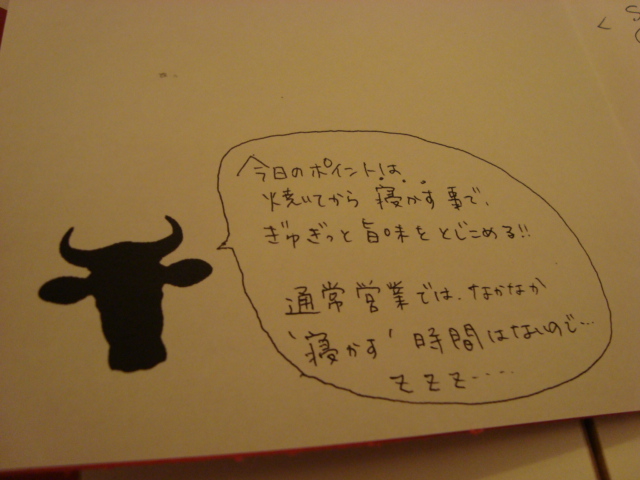 今日のポイントは、
焼いてから 寝かす事で、
ぎゅぎっと旨味をとじこめる!!
通常営業では、なかなか
'寝かす' 時間はないので…
zzz....